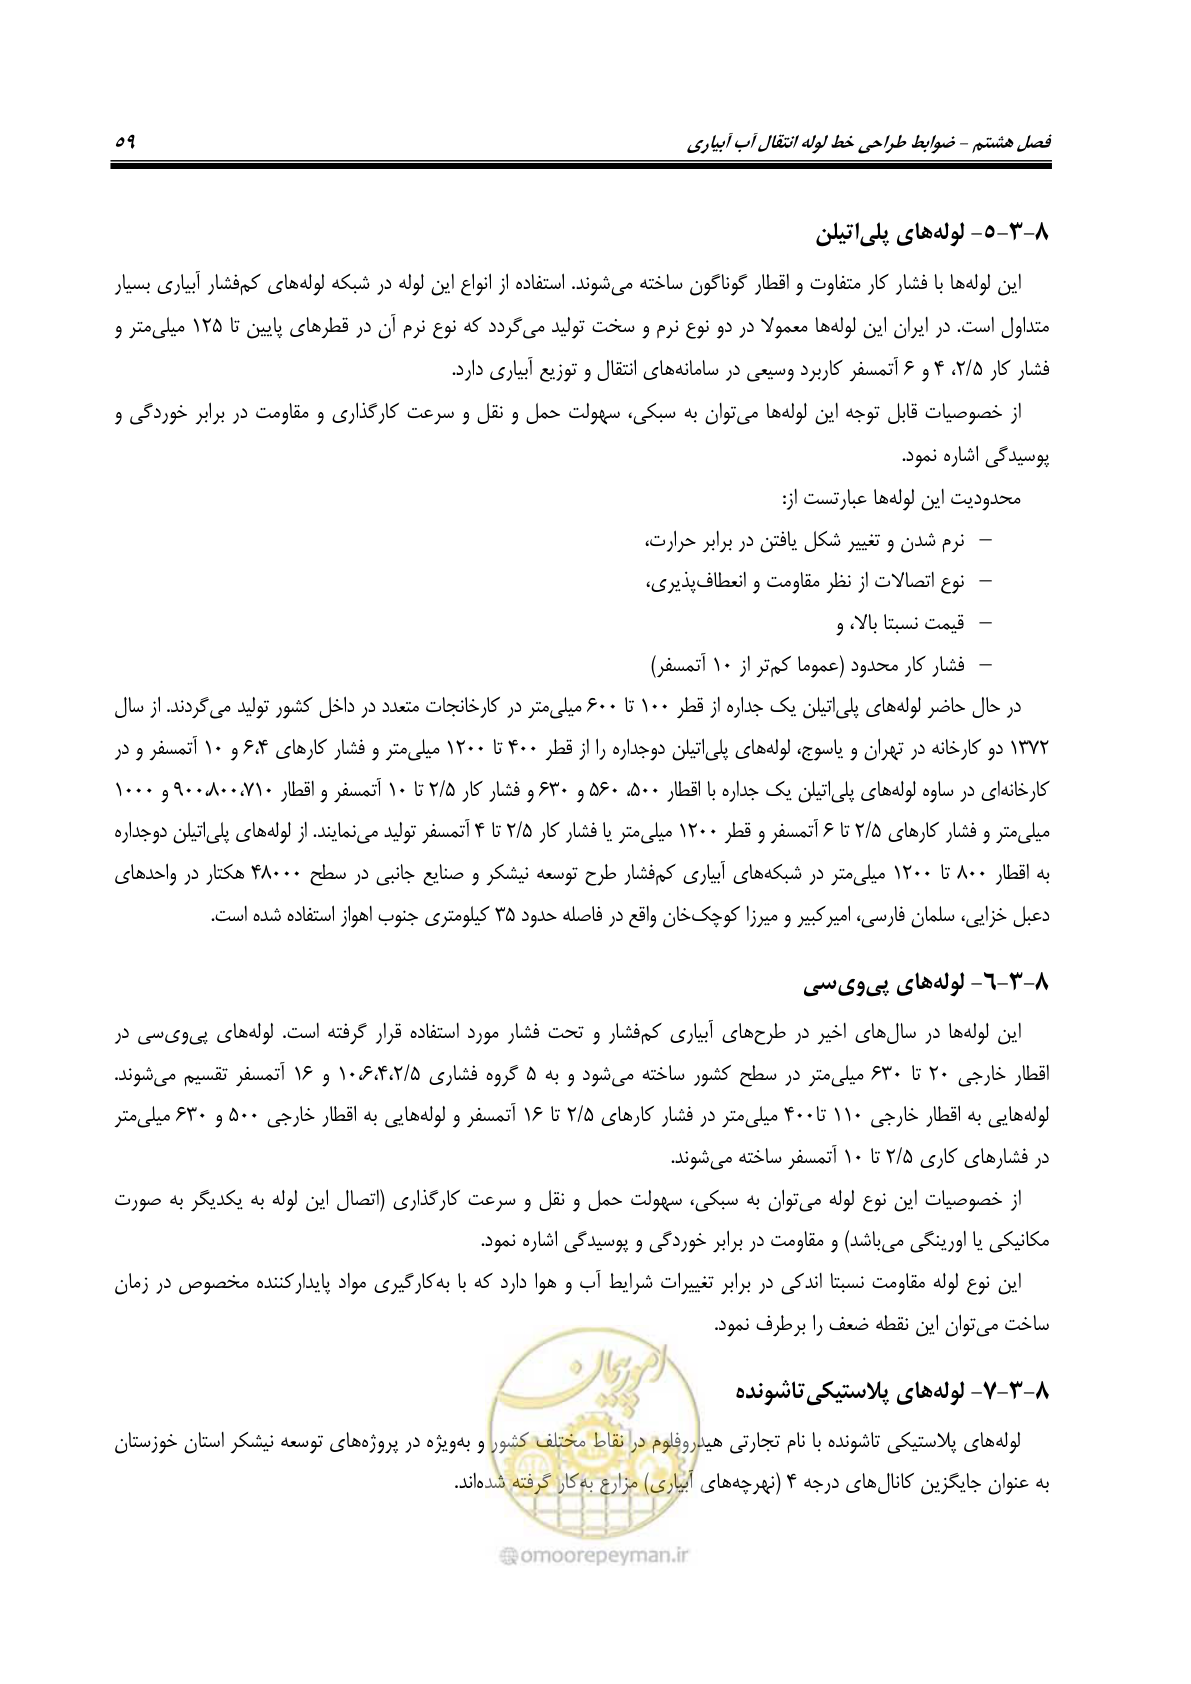 فصل هشتم – ضوابط طراحی خط لوله انتقال آب آبیاری ۵۹
۸-۳-۵- لوله‌های پلی‌اتیلن
این لوله‌ها با فشار کار متفاوت و اقطار گوناگون ساخته می‌شوند. استفاده از انواع این لوله در شبکه لوله‌های کم‌فشار آبیاری بسیار
متداول است. در ایران این لوله‌ها معمولا در دو نوع نرم و سخت تولید می‌گردد که نوع نرم آن در قطرهای پایین تا ۱۲۵ میلی‌متر و
فشار کار ۲/۵، ۴ و ۶ آتمسفر کاربرد وسیعی در سامانه‌های انتقال و توزیع آبیاری دارد.
از خصوصیات قابل توجه این لوله‌ها می‌توان به سبکی، سهولت حمل و نقل و سرعت کارگذاری و مقاومت در برابر خوردگی و
پوسیدگی اشاره نمود.
محدودیت این لوله‌ها عبارتست از:
– نرم شدن و تغییر شکل یافتن در برابر حرارت،
– نوع اتصالات از نظر مقاومت و انعطاف‌پذیری،
– قیمت نسبتا بالا، و
– فشار کار محدود (عموما کم‌تر از ۱۰ آتمسفر)
در حال حاضر لوله‌های پلی‌اتیلن یک جداره از قطر ۱۰۰ تا ۶۰۰ میلی‌متر در کارخانجات متعدد در داخل کشور تولید می‌گردند. از سال
۱۳۷۲ دو کارخانه در تهران و یاسوج، لوله‌های پلی‌اتیلن دوجداره را از قطر ۴۰۰ تا ۱۲۰۰ میلی‌متر و فشار کارهای ۶،۴ و ۱۰ آتمسفر و در
کارخانه‌ای در ساوه لوله‌های پلی‌اتیلن یک جداره با اقطار ۵۰۰، ۵۶۰ و ۶۳۰ و فشار کار ۲/۵ تا ۱۰ آتمسفر و اقطار ۹۰۰،۸۰۰،۷۱۰ و ۱۰۰۰
میلی‌متر و فشار کارهای ۲/۵ تا ۶ آتمسفر و قطر ۱۲۰۰ میلی‌متر یا فشار کار ۲/۵ تا ۴ آتمسفر تولید می‌نمایند. از لوله‌های پلی‌اتیلن دوجداره
به اقطار ۸۰۰ تا ۱۲۰۰ میلی‌متر در شبکه‌های آبیاری کم‌فشار طرح توسعه نیشکر و صنایع جانبی در سطح ۴۸۰۰۰ هکتار در واحدهای
دعبل خزایی، سلمان فارسی، امیرکبیر و میرزا کوچک‌خان واقع در فاصله حدود ۳۵ کیلومتری جنوب اهواز استفاده شده است.
۸-۳-۶- لوله‌های پی‌وی‌سی
این لوله‌ها در سال‌های اخیر در طرح‌های آبیاری کم‌فشار و تحت فشار مورد استفاده قرار گرفته است. لوله‌های پی‌وی‌سی در
اقطار خارجی ۲۰ تا ۶۳۰ میلی‌متر در سطح کشور ساخته می‌شود و به ۵ گروه فشاری ۱۰،۶،۴،۲/۵ و ۱۶ آتمسفر تقسیم می‌شوند.
لوله‌هایی به اقطار خارجی ۱۱۰ تا۴۰۰ میلی‌متر در فشار کارهای ۲/۵ تا ۱۶ آتمسفر و لوله‌هایی به اقطار خارجی ۵۰۰ و ۶۳۰ میلی‌متر
در فشارهای کاری ۲/۵ تا ۱۰ آتمسفر ساخته می‌شوند.
از خصوصیات این نوع لوله می‌توان به سبکی، سهولت حمل و نقل و سرعت کارگذاری (اتصال این لوله به یکدیگر به صورت
مکانیکی یا اورینگی می‌باشد) و مقاومت در برابر خوردگی و پوسیدگی اشاره نمود.
این نوع لوله مقاومت نسبتا اندکی در برابر تغییرات شرایط آب و هوا دارد که با به‌کارگیری مواد پایدارکننده مخصوص در زمان
ساخت می‌توان این نقطه ضعف را برطرف نمود.
۸-۳-۷- لوله‌های پلاستیکی‌تاشونده
لوله‌های پلاستیکی تاشونده با نام تجارتی هیدروفلوم در نقاط مختلف کشور و به‌ویژه در پروژه‌های توسعه نیشکر استان خوزستان
به عنوان جایگزین کانال‌های درجه ۴ (نهرچه‌های آبیاری) مزارع به‌کار گرفته شده‌اند.
امور پیمان
omoorepeyman.ir